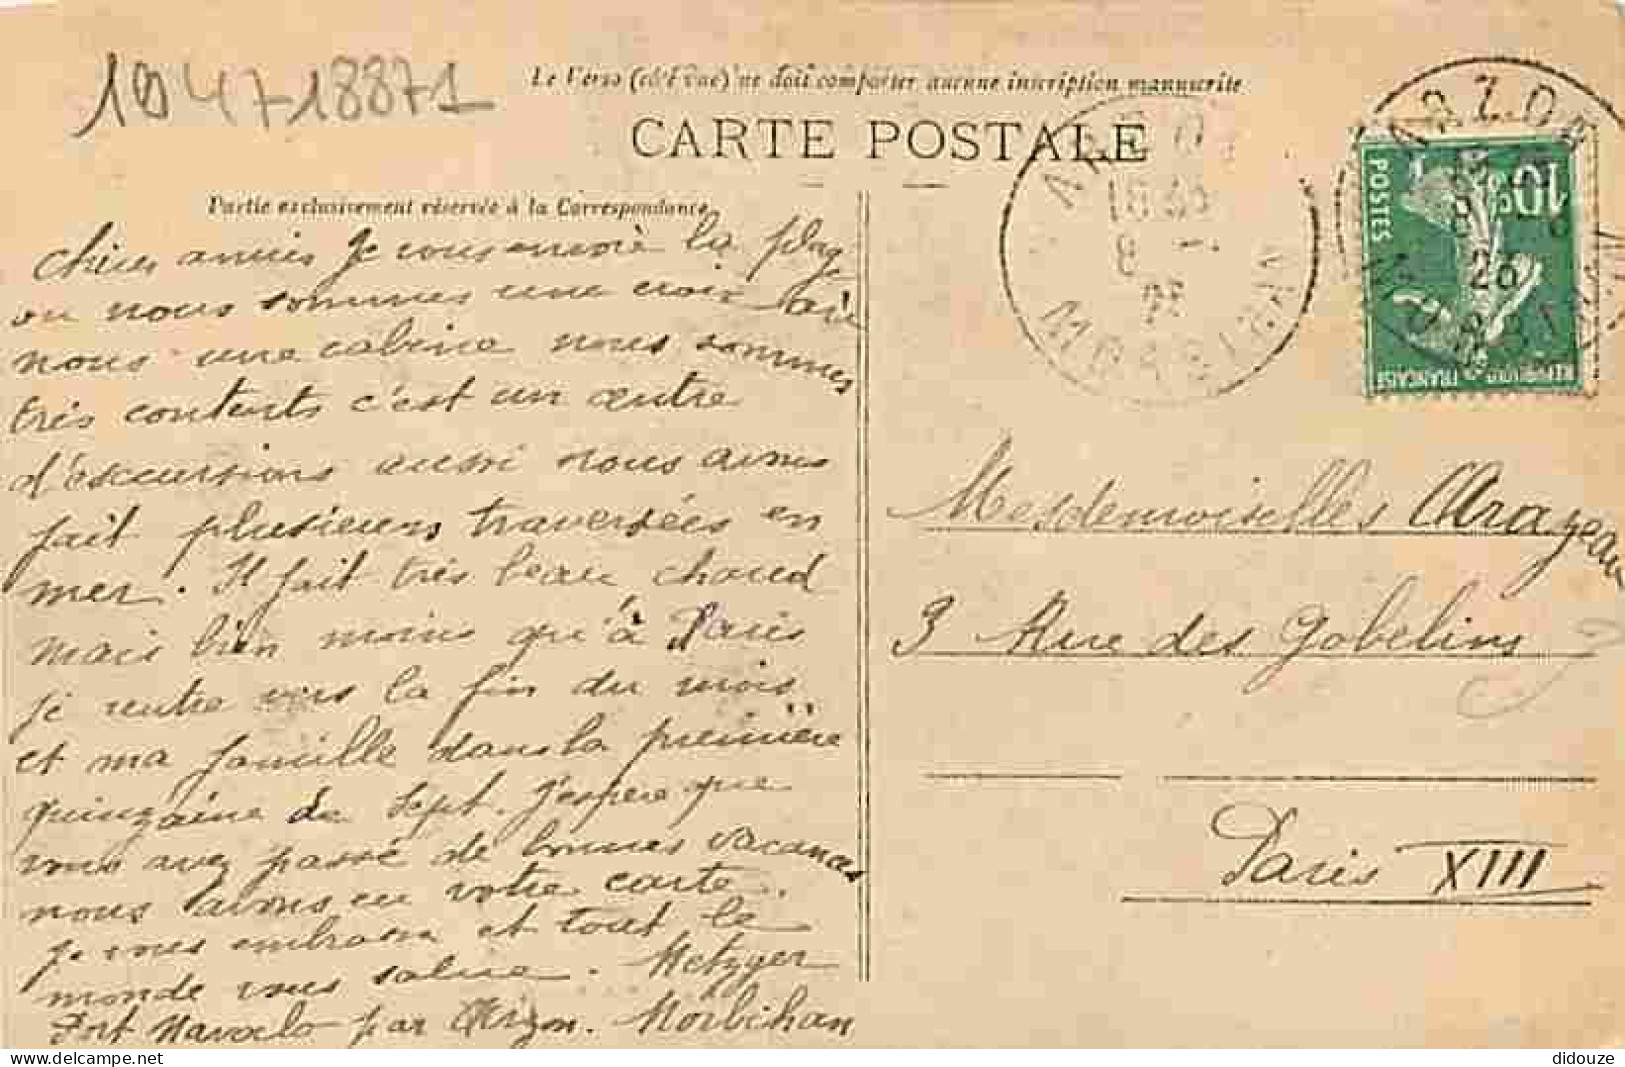 104718871
Le Verso (côté vue) ne doit comporter aucune inscription manuscrite
CARTE POSTALE
ARZON
MORBIHAN
ARZON
26
10c
POSTES
REPUBLIQUE FRANÇAISE
Partie exclusivement réservée à la Correspondance
Chères amies je vous envoie la plag
ou nous sommes une croix où
nous une cabine nous sommes
très contents c'est un centre
d'excursions aussi nous avons
fait plusieurs traversées en
mer. Il fait très beau chaud
mais bien moins qu'à Paris
je rentre vers la fin du mois
et ma famille dans la première
quinzaine de Sept. J'espère que
vous avez passé de bonnes vacances
nous avons eu votre carte.
je vous embrasse et tout le
monde vous salue. Metzger
Port Navalo par Arzon. Morbihan
Mesdemoiselles
3 Rue des Gobelins
Paris XIII
delcampe.net
didouze